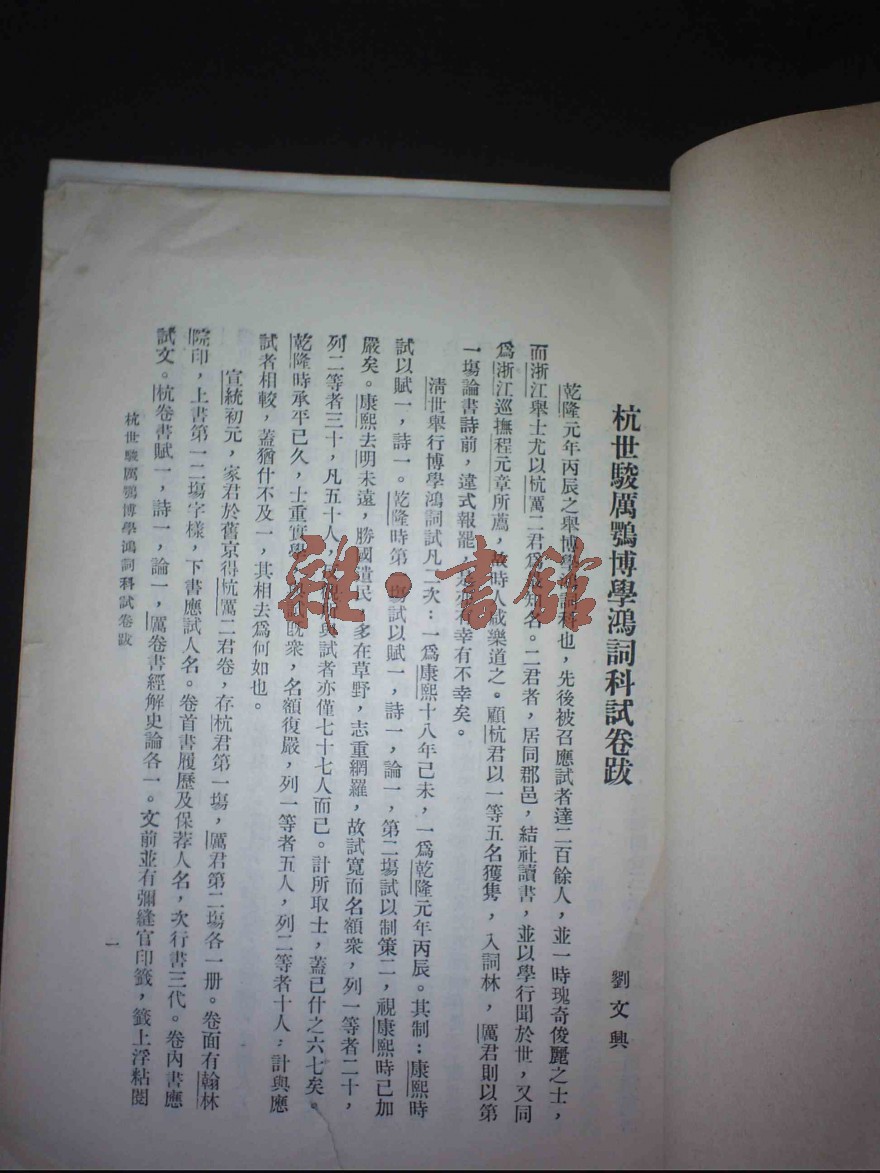 杭世駿厲鶚博學鴻詞科試卷跋
劉文興
乾隆元年丙辰之舉博學鴻詞科也，先後被召應試者達二百餘人，並一時瑰奇俊麗之士，
而浙江舉士尤以杭厲二君爲最知名。二君者，居同郡邑，結社讀書，並以學行聞於世，又同
爲浙江巡撫程元章所薦，故時人咸樂道之。顧杭君以一等五名獲雋，入詞林，厲君則以第
一場論書詩前，違式報罷，是亦有幸有不幸矣。
清世舉行博學鴻詞試凡二次：一爲康熙十八年己未，一爲乾隆元年丙辰。其制：康熙時
試以賦一，詩一。乾隆時第一場試以賦一，詩一，論一，第二場試以制策二，視康熙時已加
嚴矣。康熙去明未遠，勝國遺民，多在草野，志重網羅，故試寬而名額衆，列一等者二十，
列二等者三十，凡五十人，與試者亦僅七十七人而已。計所取士，蓋已什之六七矣。
乾隆時承平已久，士重實學，既衆，名額復嚴，列一等者五人，列二等者十人，計與應
試者相較，蓋猶什不及一，其相去爲何如也。
宣統初元，家君於舊京得杭厲二君卷，存杭君第一場，厲君第二場各一册。卷面有翰林
院印，上書第一二場字樣，下書應試人名。卷首書履歷及保荐人名，次行書三代。卷內書應
試文。杭卷書賦一，詩一，論一，厲卷書經解史論各一。文前並有彌縫官印籤，籤上浮粘閱
杭世駿厲鶚博學鴻詞科試卷跋
一
雜·書館